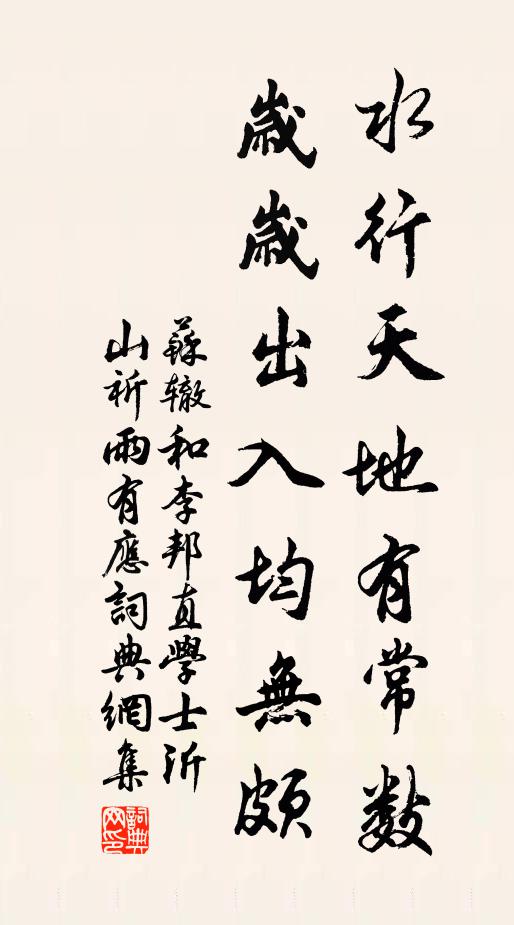 水行天地有常數
歲歲出入均無頗
蘇轍和李邦直學士沂
山祈雨有應詞典網集
詞典網印